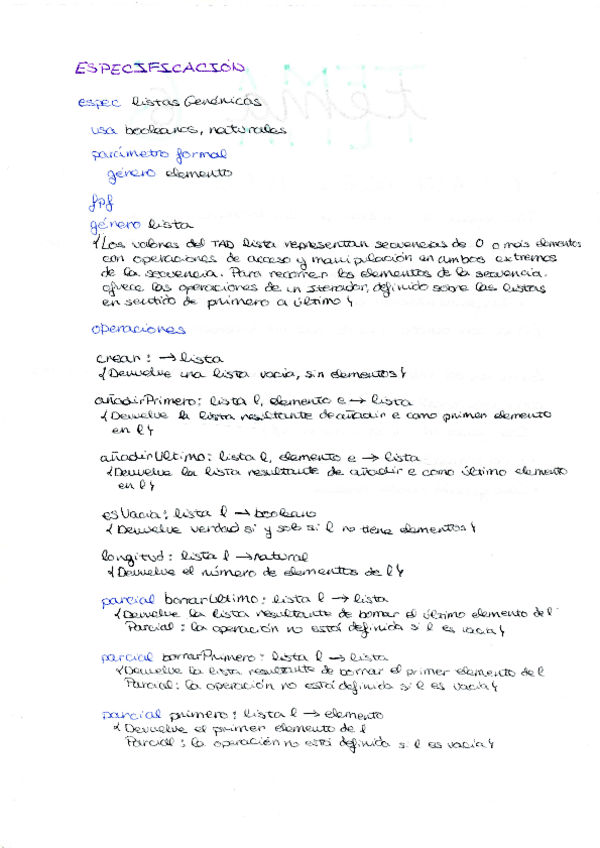 ESPECIFICACIÓN
espec listasGenéricas
usa booleanos, naturales
parámetro formal
género elemento
fpf
género lista
{Los valores del TAD lista representan secuencias de 0 o más elementos
con operaciones de acceso y manipulación en ambos extremos
de la secuencia. Para recorrer los elementos de la secuencia.
ofrece las operaciones de un iterador, definido sobre las listas
en sentido de primero a último}
operaciones
crear: → lista
{Devuelve una lista vacía, sin elementos}
añadirPrimero: lista l, elemento e → lista
{Devuelve la lista resultante de añadir e como primer elemento
en l}
añadirUltimo: lista l, elemento e → lista
{Devuelve la lista resultante de añadir e como último elemento
en l}
esVacia: lista l → booleano
{Devuelve verdad si y solo si l no tiene elementos}
longitud: lista l → natural
{Devuelve el número de elementos de l}
parcial borrarUltimo: lista l → lista
{Devuelve la lista resultante de borrar el último elemento de l
Parcial: la operación no está definida si l es vacía}
parcial borrarPrimero: lista l → lista
{Devuelve la lista resultante de borrar el primer elemento de l
Parcial: la operación no está definida si l es vacía}
parcial primero: lista l → elemento
{Devuelve el primer elemento de l
Parcial: la operación no está definida si l es vacía}